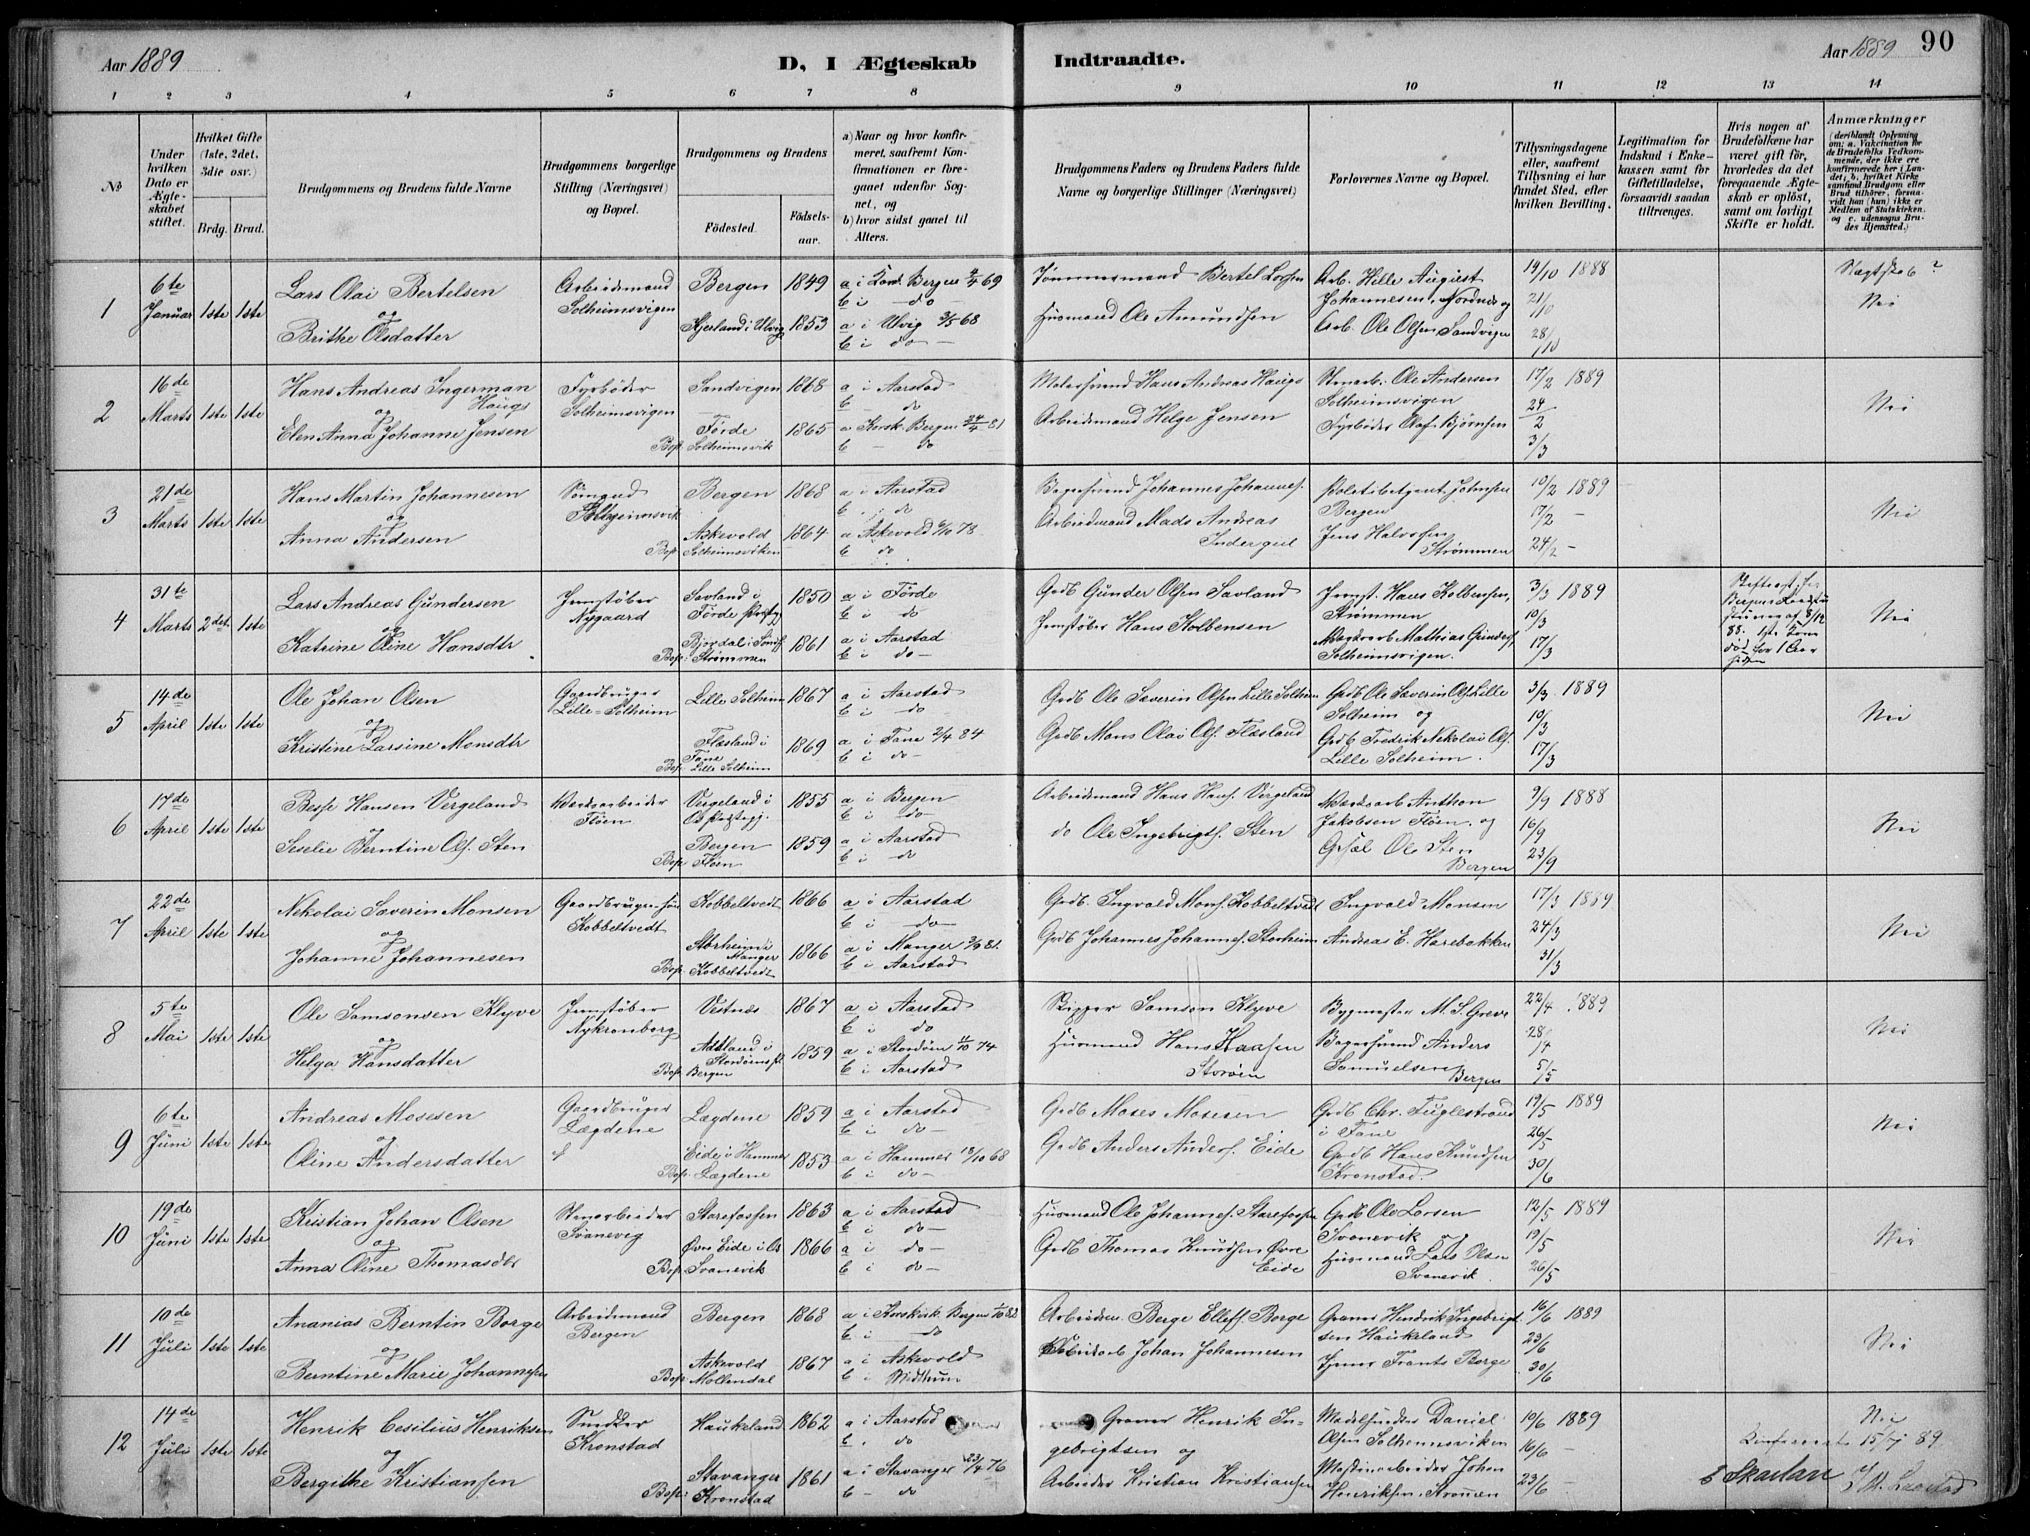 Aar 1889
D, I Ægteskab
Indtraadte.
Aar 1889
90
1 2 3 4 5 6 7 8 9 10 11 12 13 14
№
Under hvilken Dato er Ægteskabet stiftet.
Hvilket Gifte (1ste, 2det, 3die osv.)
Brdg. Brud.
Brudgommens og Brudens fulde Navne
Brudgommens borgerlige Stilling (Næringsvei) og Bopæl.
Brudgommens og Brudens
Fødested.
Fødselsaar.
a) Naar og hvor konfirmeret, saafremt Konfirmationen er foregaaet udenfor Sognet, og
b) hvor sidst gaaet til Alters.
Brudgommens Faders og Brudens Faders fulde Navne og borgerlige Stillinger (Næringsvei)
Forlovernes Navne og Bopæl.
Tillysningsdagene eller, saafremt Tillysning ei har fundet Sted, efter hvilken Bevilling.
Legitimation for Indskud i Enkekassen samt for Giftetilladelse, forsaavidt saadan tiltrænges.
Hvis nogen af Brudefolkene har været gift før, hvorledes da det foregaaende Ægteskab er opløst, samt om lovligt Skifte er holdt.
Anmærkninger
(deriblandt Oplysning om: a. Vaccination for de Brudefolks Vedkommende, der ikke ere konfirmerede her i Landet; b. hvilket Kirkesamfund Brudgom eller Brud tilhører, forsaavidt han (hun) ikke er Medlem af Statskirken, og c. udensogns Brudes Hjemsted.)
1 6te Januar 1ste 1ste
Lars Olai Bertelsen og Brithe Olsdatter
Arbeidsmand Solheimsvigen
Bergen 1849 a i Bergen 69 b i do
i Ulvig 1853 a i Ulvig 3/5 68 b i do
Tømmermand Bertel
Husmand Ole Amundsen
Arb. Hille August Johannesen, Nordnes og
Arb. Ole Olsen Sandvigen
14/10 1888 21/10 28/10
Nei
2 16de Marts 1ste 1ste
Hans Andreas Ingerman Haugs og Elen Anna Johanne Jensen
Fyrbøder Solheimsvigen
Sandvigen 1868 a i Aarstad b do
Førde 1865 a Korsk. Bergen 24/4 81 b do
Bop. Solheimsvik
Hans Andreas Haugs
Arbeidsmand Helge Jensen
Ole Andersen Solheimsvigen
Fyrbøder Olaf Bjørnsen
17/2 1889 24/2 3/3
Nei
3 21de Marts 1ste 1ste
Hans Martin Johannesen og Anna Andersen
Sømand Solheimsvik
Bergen 1868 a i Aarstad b do
Askevold 1864 a Askevold 6/10 78 b do
Bop. Solheimsviken
Johannes Johannes.
Arbeidsmand Mads Andreas Indergul
Politibetjent Johnsen Bergen
Jens Halvorsen Strømmen
10/2 1889 17/2 - 24/2 -
Nei
4 31te Marts 2det 1ste
Lars Andreas Gundersen og Katrine Oline Hansdtr
Jernstøber Nygaard
Savland i Førde 1850 a i Førde b i do
Bjordal i 1861 a i Aarstad b i do
Bop. Strømmen
Gdb Gunder Olsen Savland
Jernstøber Hans Kolbensen
Jernst. Hans Kolbensen, Strømmen
Mathias Solheimsvigen.
3/3 1889 10/3 17/3
Nei
5 14de April 1ste 1ste
Ole Johan Olsen og Kristine Larsine Monsdtr
Gaardbruger Lille-Solheim
Lille Solheim 1867 a i Aarstad b i do
Flæsland i Fane 1869 a i Fane 2/4 84 b i do
Bop. Lille Solheim
Gdb Ole Severin Olsen Lille Solheim
Gdb Mons Olai Ols. Flæsland
Gdb Ole Severin Ols. Lille Solheim og
Gdb Fredrik Nikolai Ols. Lille Solheim.
3/3 1889 10/3 17/3
Nei
6 17de April 1ste 1ste
Hansen Vergeland og Berntine Ols. Sten
Verksarbeider Fløen
Vergeland i 1855 a i Bergen b i do
Bergen 1859 a i Aarstad b i do
Bop. Fløen
Arbeidsmand Hans Hans. Vergeland
do Ole Ingebrigts. Sten
Verksarb Anthon Jakobsen Fløen og
Ole Sten Bergen
9/9 1888 16/9 23/9
Nei
7 22de April 1ste 1ste
Nikolai Severin Monsen og Johanne Johannesen
Kobbeltvedt
Kobbeltvedt 1866 a i Aarstad b i do
Storheim i Manger 1866 a i Manger b i Aarstad
Bop. Kobbeltvedt
Gdb. Ingvald Mons. Kobbeltvedt
Gdb Johannes Johannes. Storheim
Ingvald Monsen
Andreas E. Harebakken
17/3 1889 24/3 31/3
Nei
8 5te Mai 1ste 1ste
Ole Samsonsen Klyve og Helga Hansdatter
Jernstøber Nykronborg
Vestnes 1867 a i Aarstad b i do
Adtland i 1859 a i Stordøen 74 b i Aarstad
Bop. Bergen
Skipper Samson Klyve
Husmand Hans Storøen
Bygmester M. S. Greve
Bagersvend Anders Samuelsen Bergen
22/4 1889 28/4 5/5
Nei
9 6te Juni 1ste 1ste
Andreas Mosesen og Oline Andersdatter
Gaardbruger Lægdene
Lægdene 1859 a i Aarstad b i do
Eide i Hammer 1853 a i Hammer 13/10 68 b i do
Bop. Lægdene
Gdb Moses Mosesen
Gdb Anders Anders. Eide
Gdb Chr. Fuglestrand i Fane
Gdb Hans Knudsen Kronstad.
19/5 1889 26/5 30/6
Nei
10 19de Juni 1ste 1ste
Kristian Johan Olsen og Anna Oline Thomasdtr
Stenarbeider Svanevig
Starefossen 1863 a i Aarstad b i do
Øvre Eide i Os 1866 a i do b i do
Bop. Svanevik
Husmand Ole Johannes. Starefossen
Gdb Thomas Knudsen Øvre Eide
Gdb Ole Larsen Svanevik og
Husmand Lars Olsen Svanevik.
12/5 1889 19/5 26/5
Nei
11 10de Juli 1ste 1ste
Ananias Berntin Borge og Berntine Marie Johannesen
Arbeidsmand Bergen
Bergen 1868 a i Korskirk. Bergen b i do
Askevold 1867 a i Askevold b i
Bop. Møllendal
Arbeidsm. Berge Ellefs. Borge
Johan Johannesen
Graver Hendrik Ingebrigtsen Haukeland
Frants Borge
16/6 1889 23/6 30/6
Nei
12 14de Juli 1ste 1ste
Henrik Cesilius Henriksen og Bergithe Kristiansen
Snedker Kronstad
Haukeland 1862 a i Aarstad b i do
Stavanger 1861 a i Stavanger 23/4 76 b - do
Bop. Kronstad
Graver Henrik Ingebrigtsen og
Arbeider Kristian Kristiansen
Daniel Olsen Solheimsviken
Maskinarbeider Johan Henriksen Strømen
10/6 1889 16/6 - 23/6 -
Nei
15/7 89